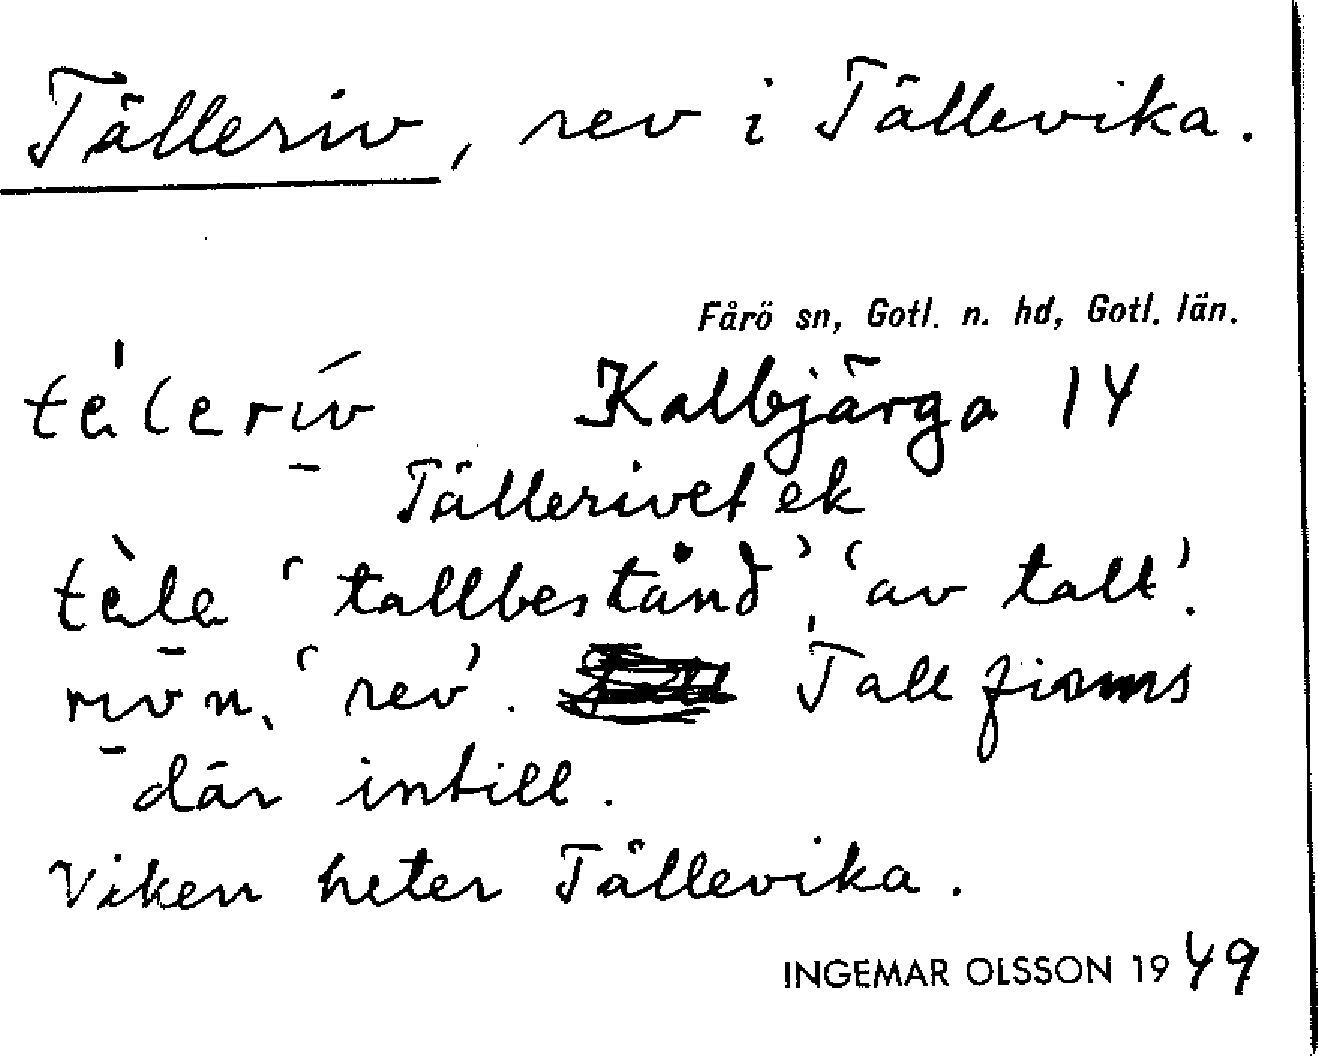 Tälleriv, rev i Tällevika.
Fårö sn, Gotl. n. hd, Gotl. län.
Kalbjärga 14
Tällerivet ek
tallbestånd', 'av tall'.
'rev'. Tall finns
där intill.
Viken heter Tällevika.
INGEMAR OLSSON 1949